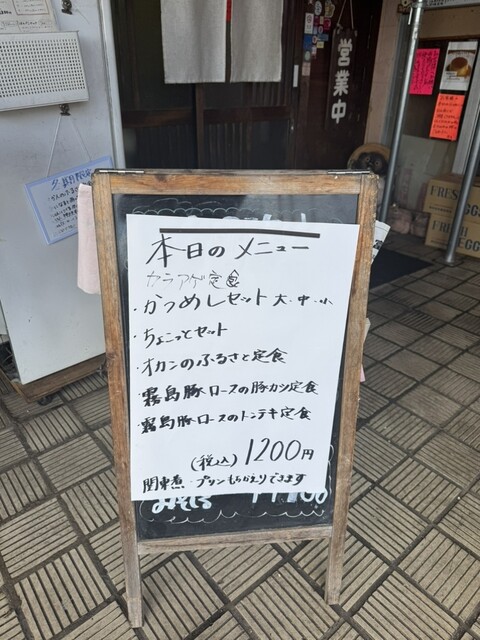 営業中
本日のメニュー
カラアゲ定食
・かつめしセット 大・中・小
・ちょこっとセット
・オカンのふるさと定食
・霧島豚ロースの豚カツ定食
・霧島豚ロースのトンテキ定食
(税込) 1200円
関東煮・プリンもちかえりできます
FRESH
EGGS
FRESH
EGGS